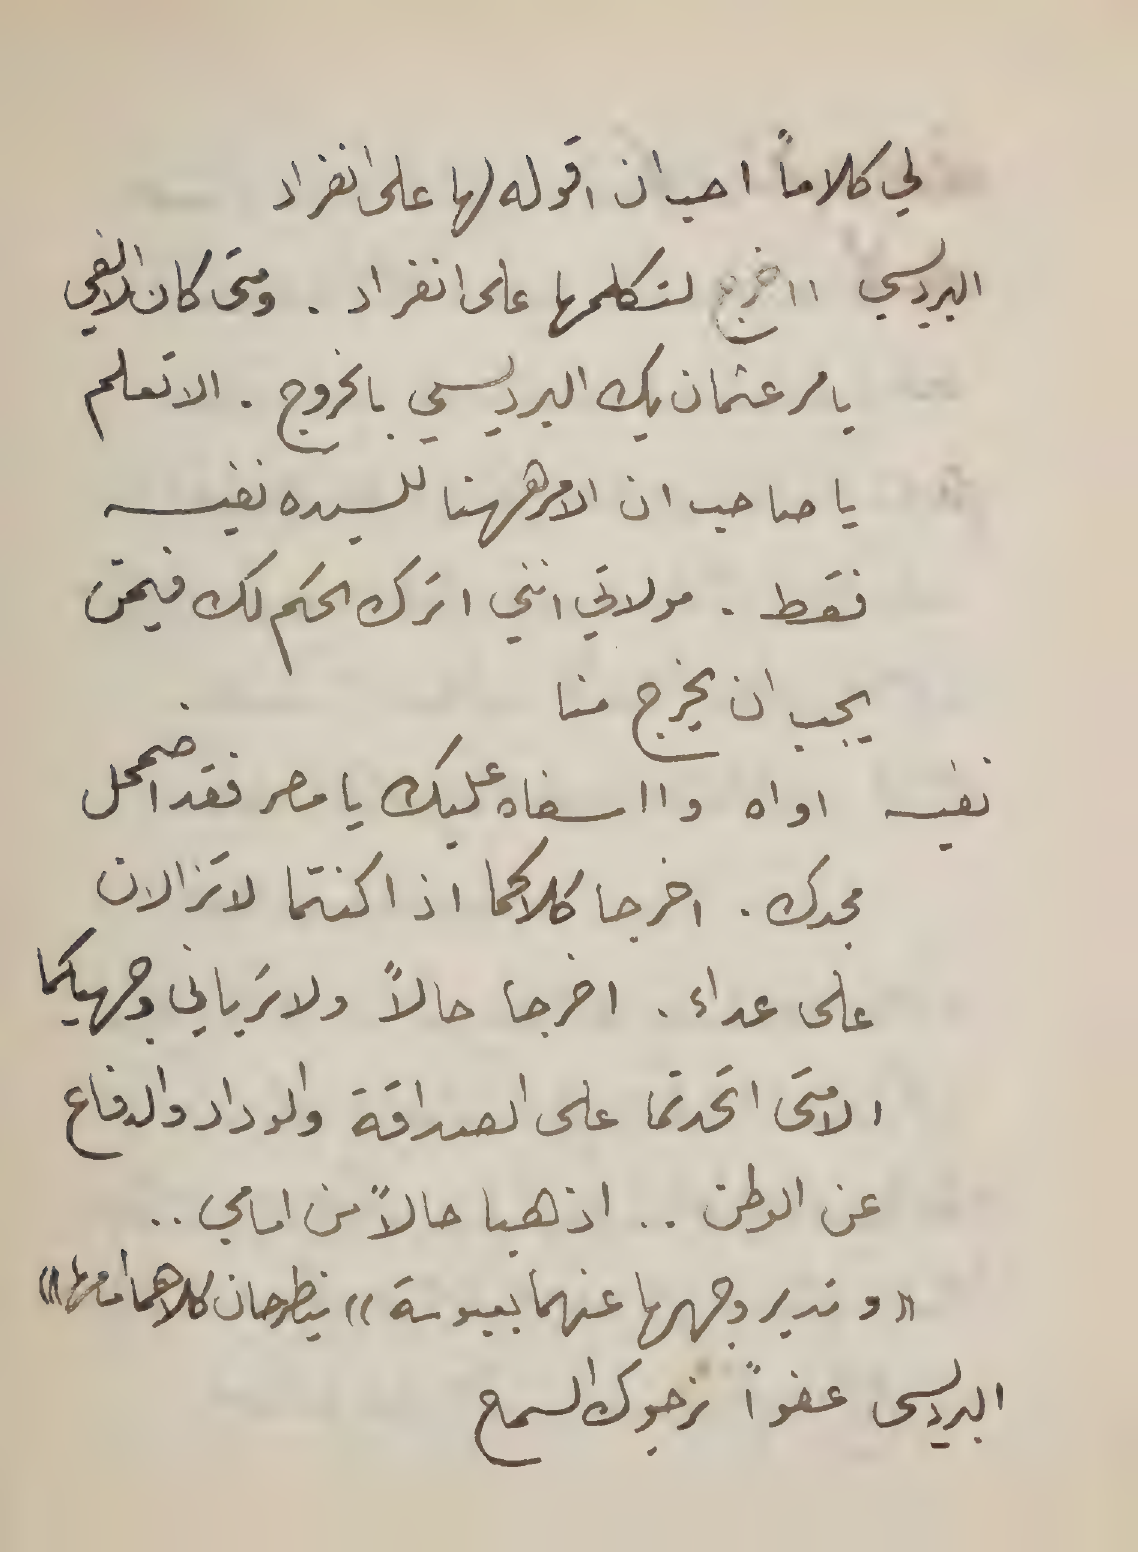 لي كلاماً احب ان اقوله لها على انفراد
البرديسي ااخرج لتكلمها على انفراد . ومتى كان الالفي
يامر عثمان بك البرديسي بالخروج . الا تعلم
يا صاحب ان الامر ههنا للسيده نفيسه
فقط . مولاتي انني اترك الحكم لك فيمن
يجب ان يخرج منا
نفيسه اواه وااسفاه عليك يا مصر فقد اضمحل
مجدك . اخرجا كلاكما اذا كنتما لا تزالان
على عداء . اخرجا حالاً ولا ترياني وجهيكما
الا متى اتحدتما على الصداقة والوداد والدفاع
عن الوطن .. اذهبا حالاً من امامي ..
« وتدير وجهها عنهما بعبوسة » ينطرحان كلاهما امامها »
البرديسي عفواً نرجوك السماح